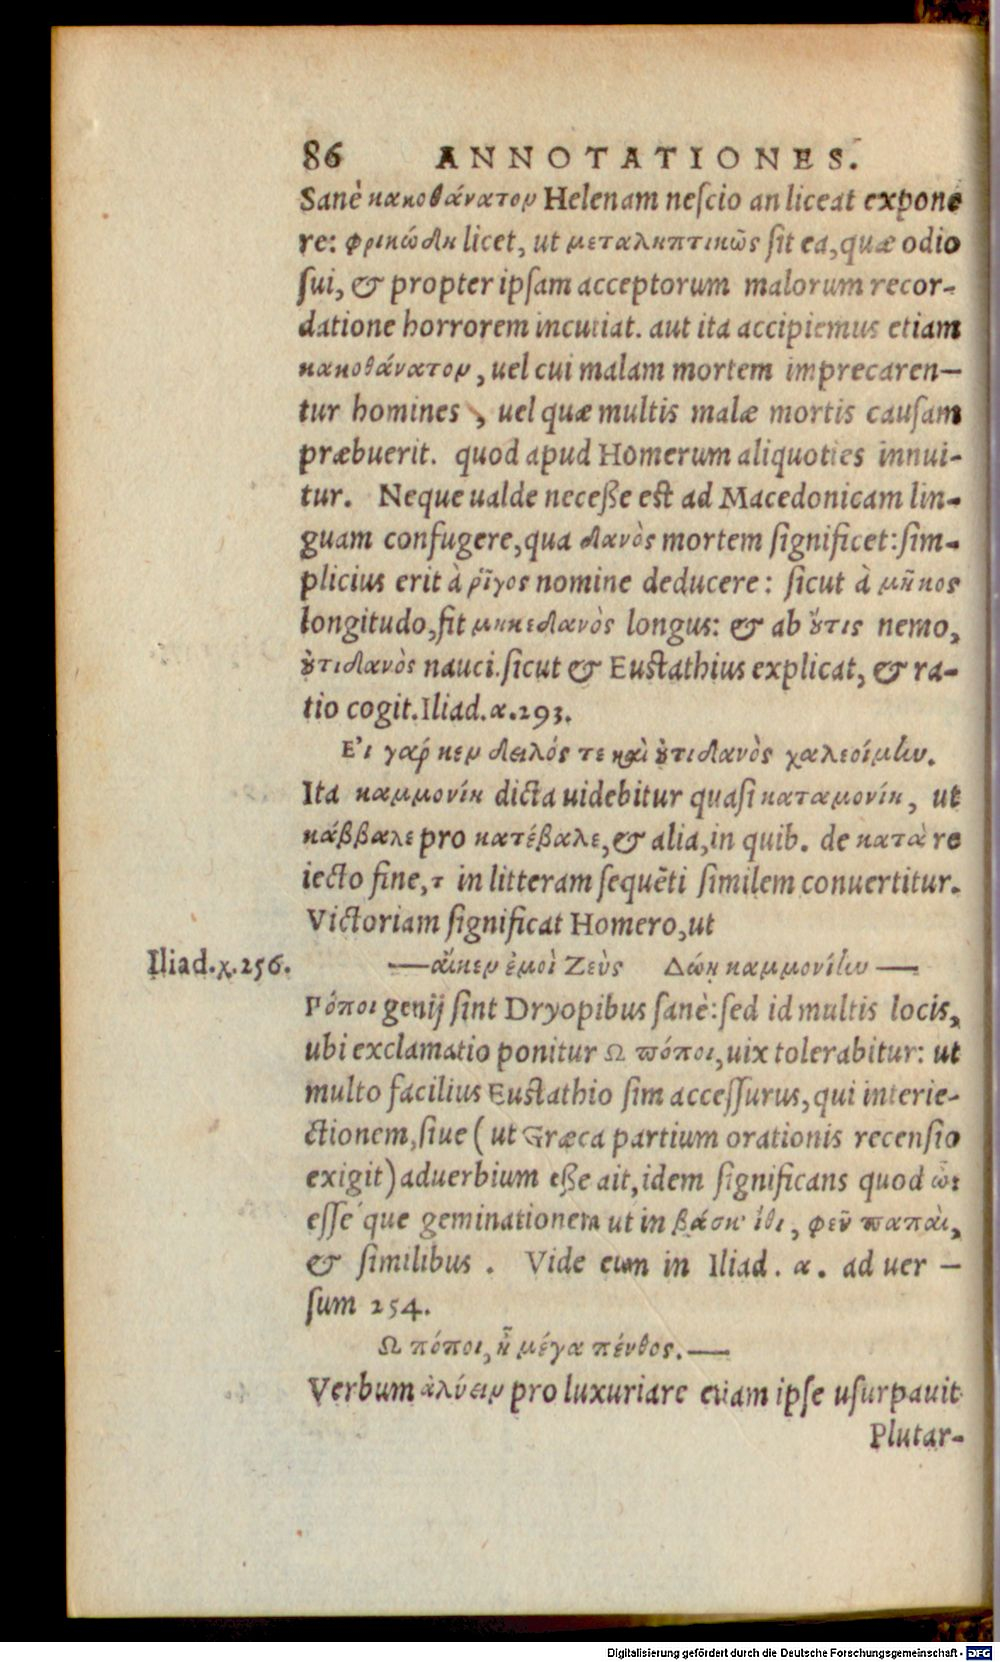 86 ANNOTATIONES.
Sanè κακοθάνατον Helenam neſcio an liceat expone
re: φρικώδη licet, ut μεταληπτικῶς ſit ea, quæ odio
ſui, & propter ipſam acceptorum malorum recor-
datione horrorem incutiat. aut ita accipiemus etiam
κακοθάνατον, uel cui malam mortem imprecaren-
tur homines, uel quæ multis malæ mortis cauſam
præbuerit. quod apud Homerum aliquoties innui-
tur. Neque ualde neceße est ad Macedonicam lin-
guam confugere, qua δανὸς mortem ſignificet: ſim-
plicius erit à ῥῖγος nomine deducere: ſicut à μῆκος
longitudo, fit μηκεδανὸς longus: & ab ὅτις nemo,
ȣ̓τιδανὸς nauci. ſicut & Eustathius explicat, & ra-
tio cogit. Iliad. α. 293.
Εἰ γάρ κεν δειλός τε καὶ ȣ̓τιδανὸς χαλεοίμην.
Ita καμμονίη dicta uidebitur quaſi καταμονίη, ut
κάββαλε pro κατέβαλε, & alia, in quib. de κατὰ re
iecto fine, τ in litteram ſequẽti ſimilem conuertitur.
Victoriam ſignificat Homero, ut
Iliad. χ. 256.
—αἴκεν ἐμοὶ Ζεὺς Δώῃ καμμονίην—
Ρόποι genij ſint Dryopibus ſanè: ſed id multis locis,
ubi exclamatio ponitur Ω πόποι, uix tolerabitur: ut
multo facilius Eustathio ſim acceſſurus, qui interie-
ctionem, ſiue (ut Græca partium orationis recenſio
exigit) aduerbium eße ait, idem ſignificans quod ὦ:
eſſe que geminationem ut in βάσκ' ἴθι, φεῦ παπαὶ,
& ſimilibus. Vide eum in Iliad. α. ad uer-
ſum 254.
Ω πόποι, ἦ μέγα πένθος.—
Verbum ἀλύειν pro luxuriare etiam ipſe uſurpauit
Plutar-
Digitalisierung gefördert durch die Deutsche Forschungsgemeinschaft - DFG